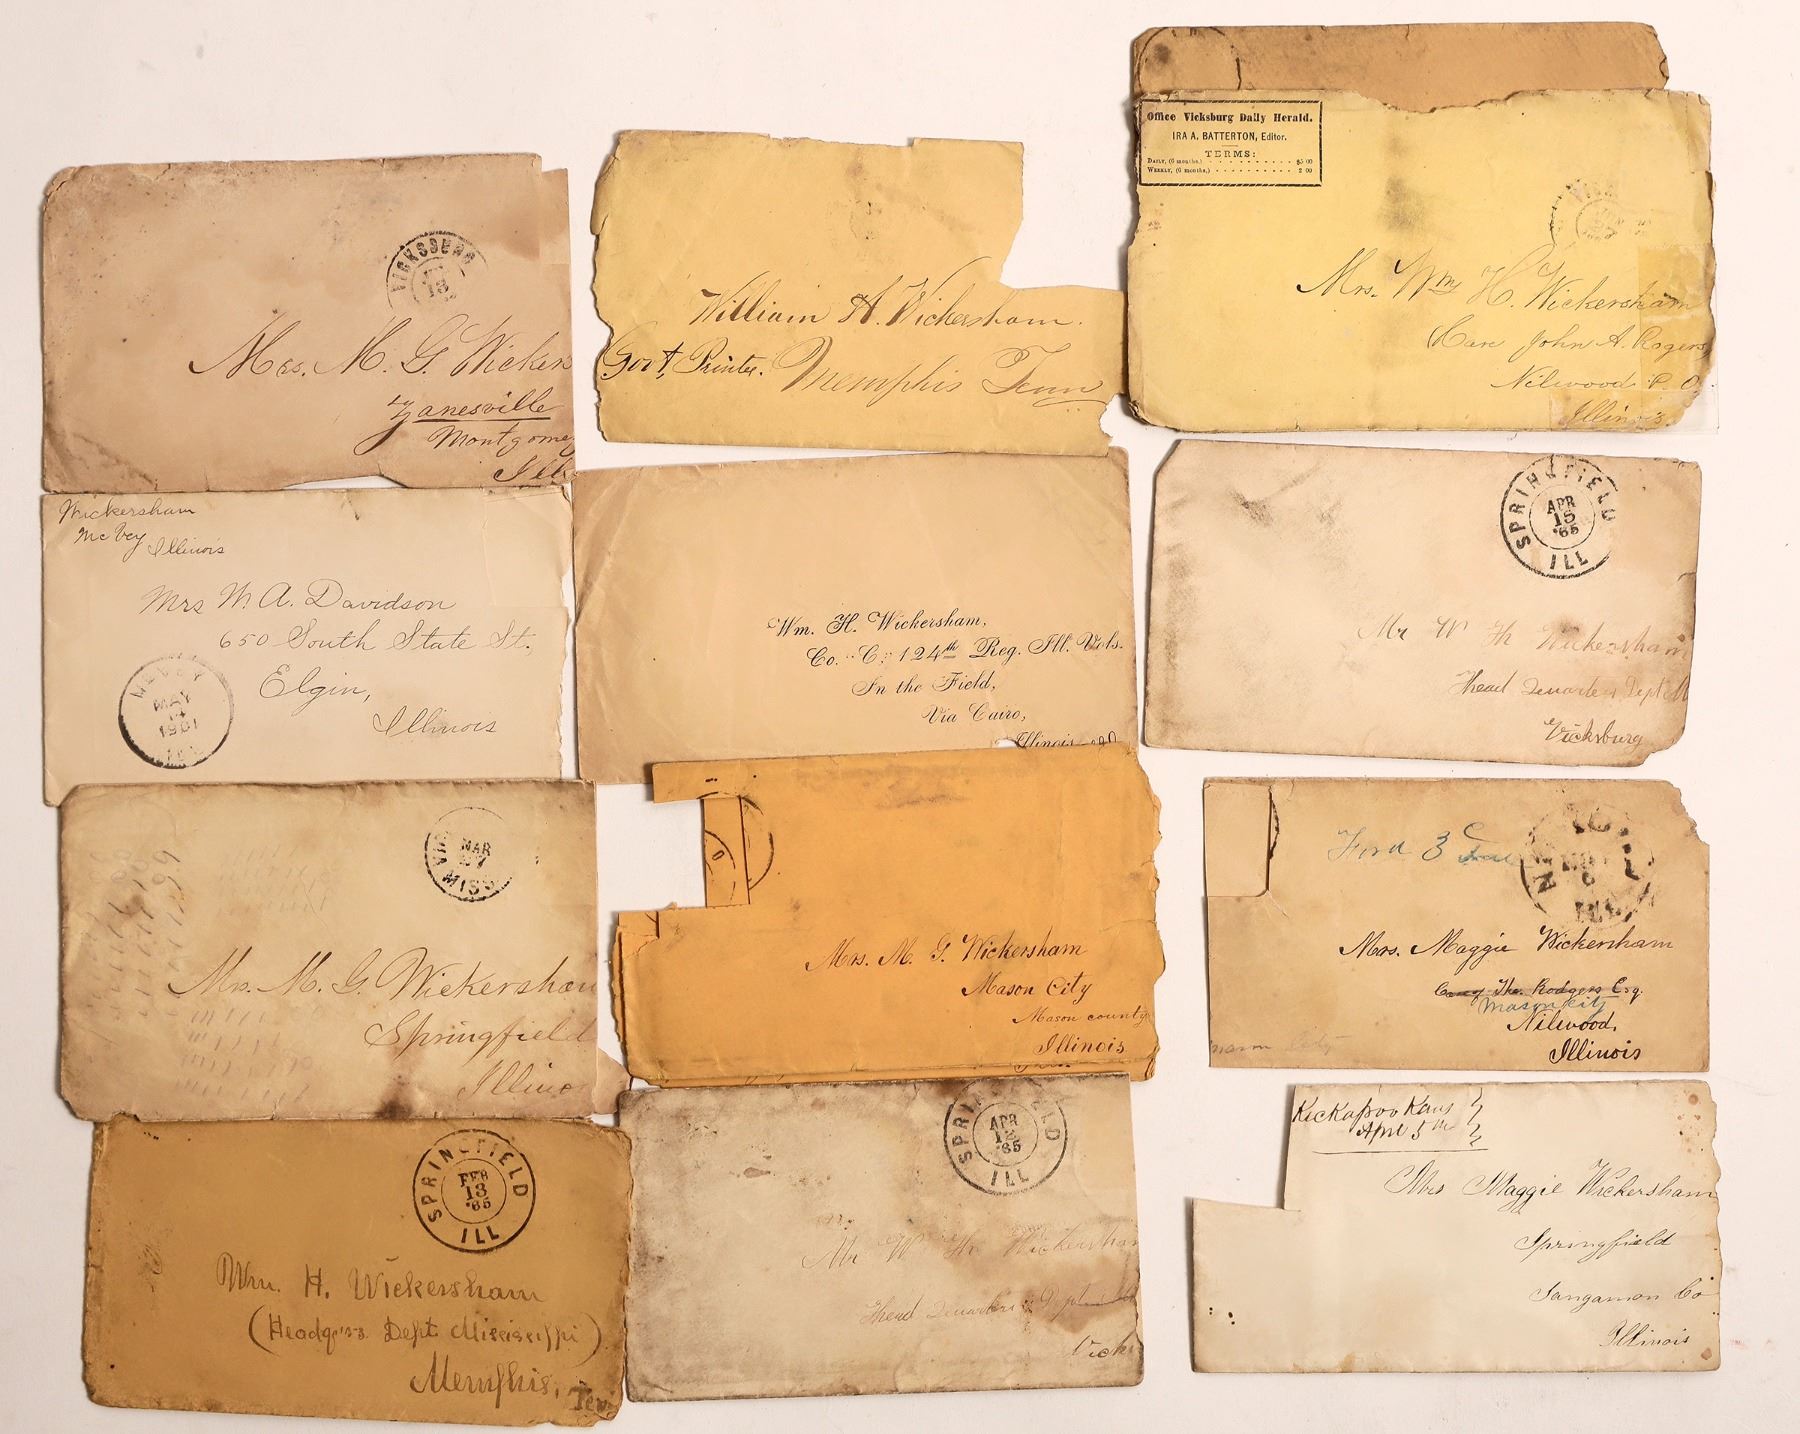 VICKSBURG
13
Mrs. M. G. Wicker
Zanesville
Montgome
Ills
William H. Wickersham.
Govt, Printer. Memphis Tenn
Office Vicksburg Daily Herald.
IRA A. BATTERTON, Editor.
TERMS:
DAILY, (6 months,) $5 00
WEEKLY, (6 months,) 2 00
Mrs. Wm H. Wickersham
Care John A. Rogers
Nilwood P. O.
Illinois.
Wickersham
McVey Illinois
Mrs W. A. Davidson
650 South State St.
Elgin,
Illinois
MCVEY
MAY
14
1901
ILL
Wm. H. Wickersham,
Co. "C," 124th Reg. Ill. Vols.
In the Field,
Via Cairo,
Illinois
SPRINGFIELD
APR
15
'65
ILL
Mr W H Wickersham
Head Quarters Dept M
Vicksburg
VIC
MAR
27
MISS
Mrs. M. G. Wickersham
Springfield
Illino
Mrs. M. G. Wickersham
Mason City
Mason county
Illinois
Ford 3
Mrs. Maggie Wickersham
Care of Rodgers Esq.
Mason City
Nilwood,
Illinois
mason city
SPRINGFIELD
FEB
13
'65
ILL
Wm. H. Wickersham
(Headqrs Dept Mississippi)
Memphis, Ten
SPRINGFIELD
APR
12
'65
ILL
Mr W H Wickersham
Head Quarters Dept
Vicks
Kickapoo Kans
Apri 5th
Mrs Maggie Wickersham
Springfield
Sangamon Co
Illinois